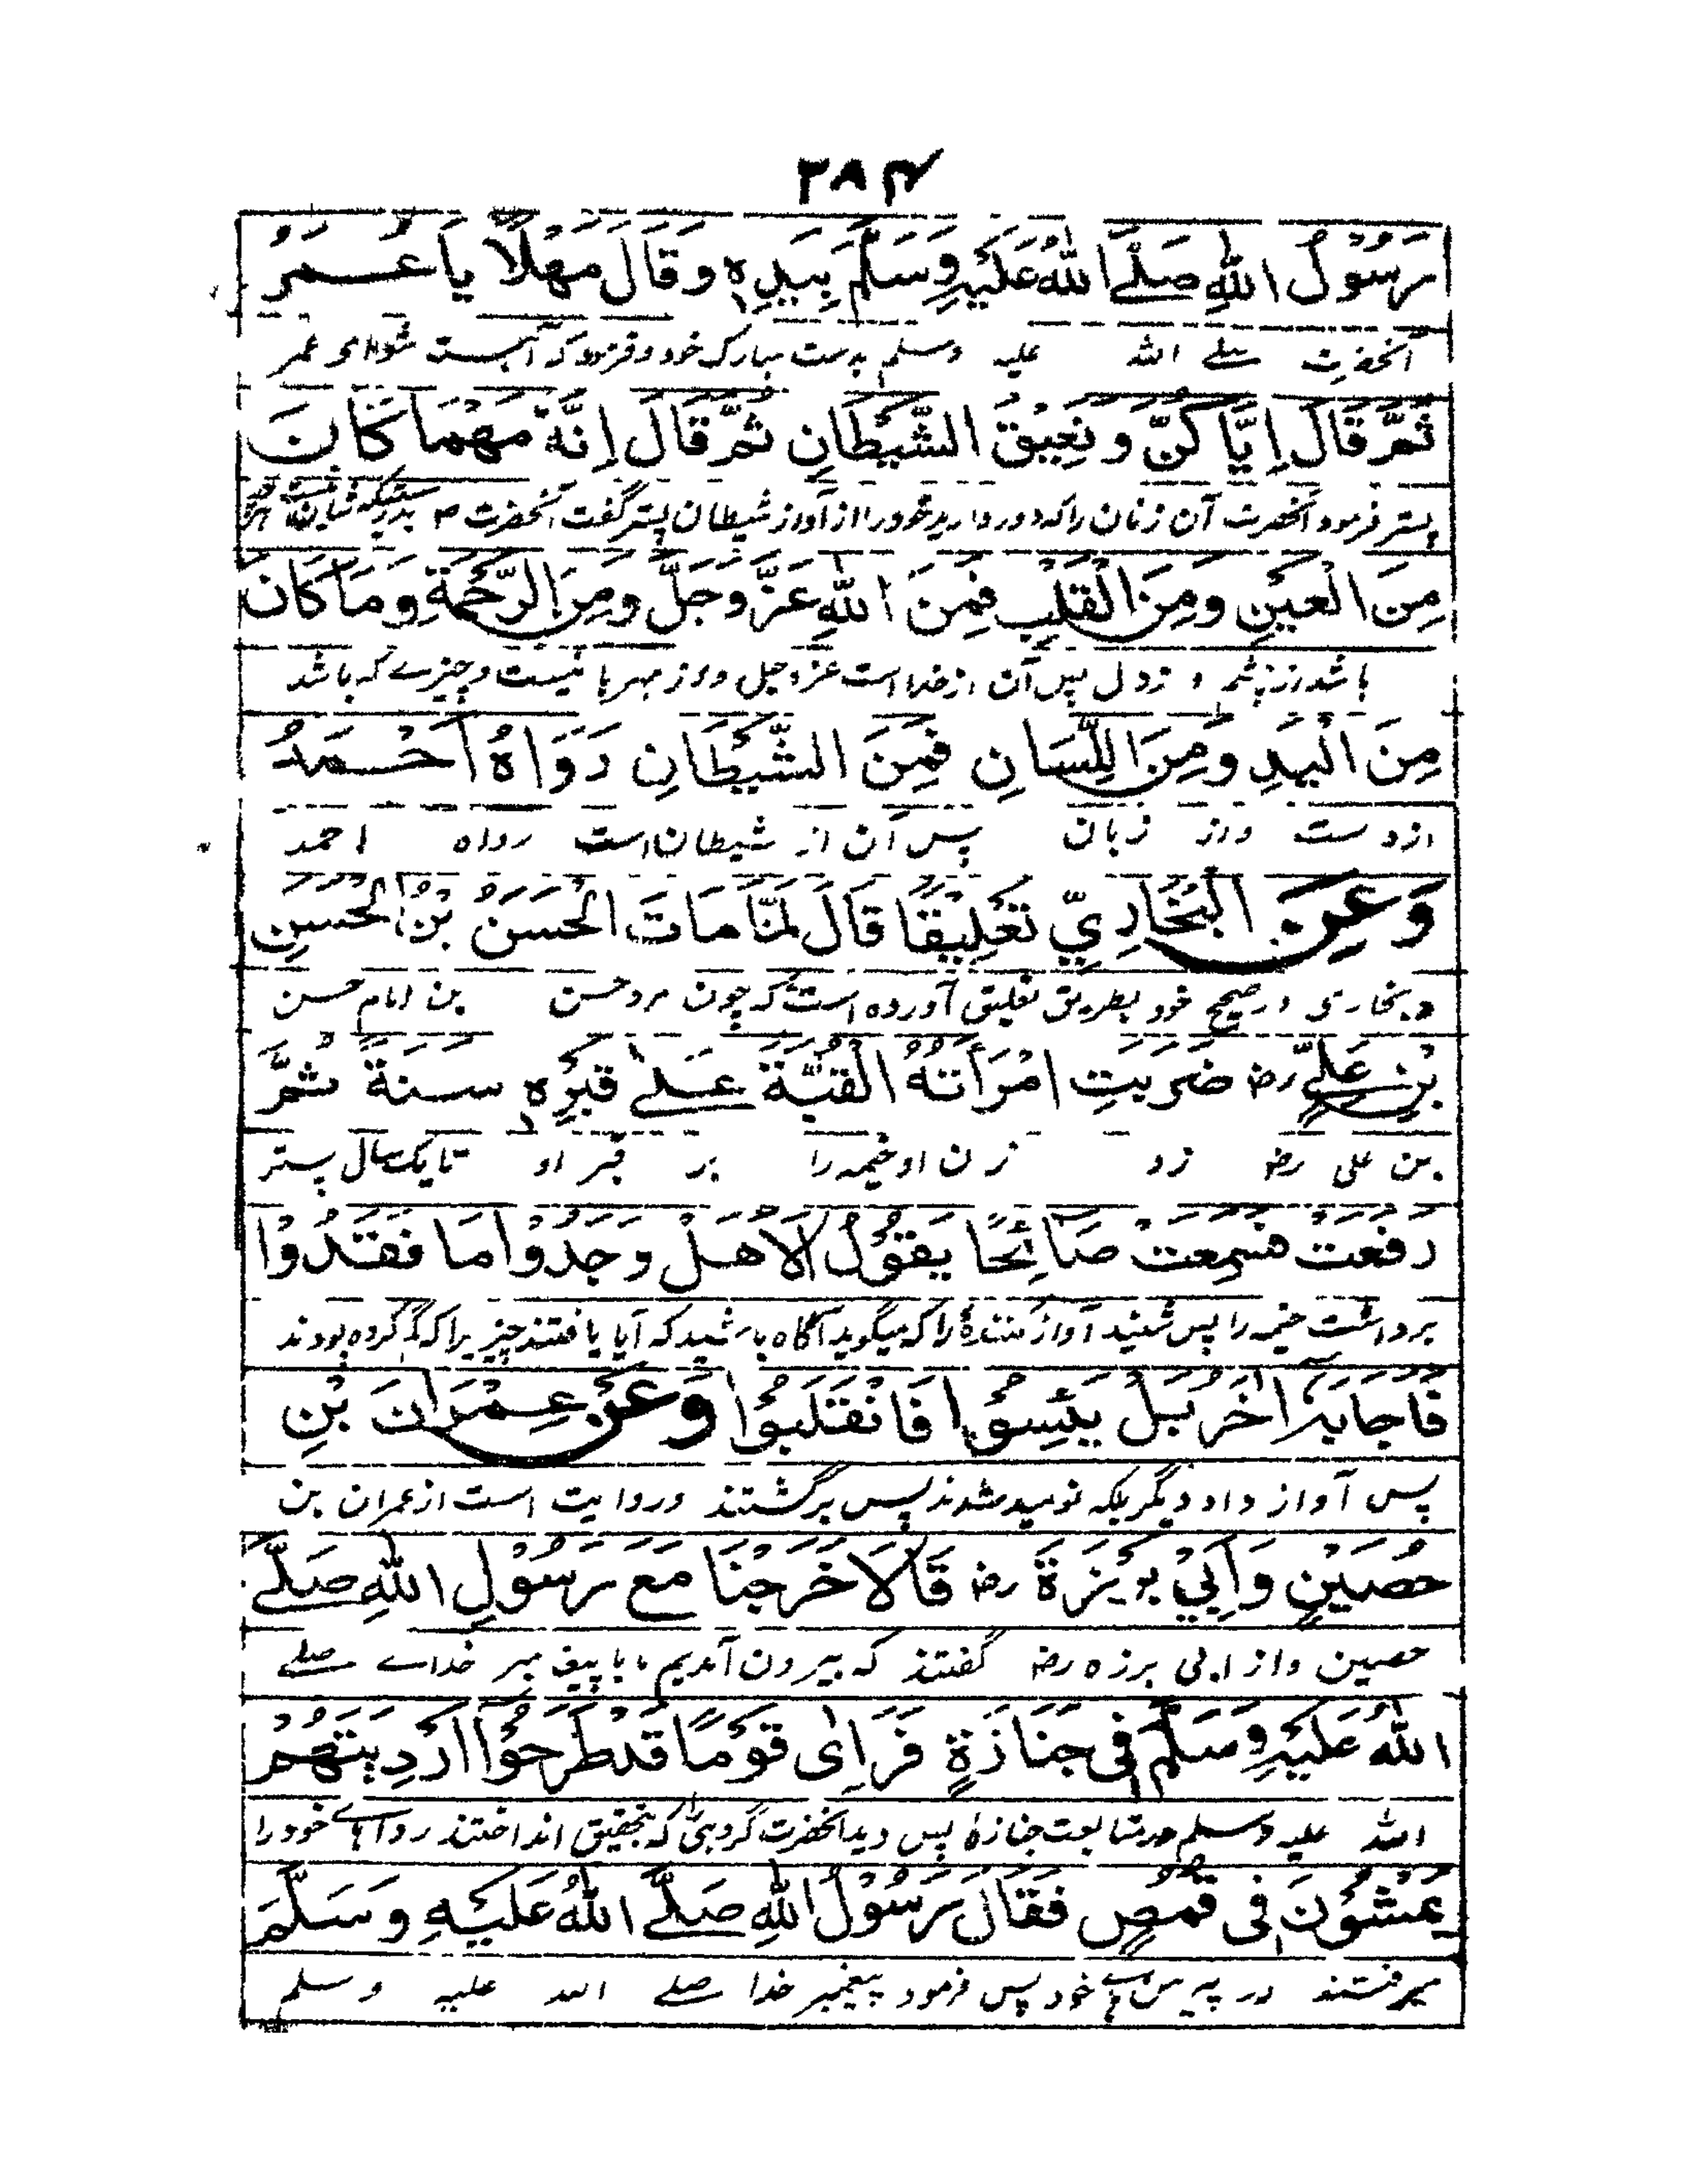 ۳۸۴
رَسُوْلُ اللهِ صَلَّے اللهُ عَلَيْهِ وَسَلَّمَ بِيَدِهٖ وَقَالَ مَهْلًا يَا عُمَرُ
آنحضرت صلے الله علیه وسلم بدست مبارک خود وفرمود که آهسته شو ای عمر
ثُمَّ قَالَ اِيَّاكُنَّ وَنَعِيْقَ الشَّيْطَانِ ثُمَّ قَالَ اِنَّهٗ مَهْمَا كَانَ
پستر فرمود آنحضرت آن زنان را که دور دارید خود را از آواز شیطان پستر گفت آنحضرت ص بدرستیکه
مِنَ الْعَيْنِ وَمِنَ الْقَلْبِ فَمِنَ اللهِ عَزَّ وَجَلَّ وَمِنَ الرَّحْمَةِ وَمَا كَانَ
باشد از چشم و از دل پس آن از خدا است عز وجل و از مهربانیست و چیزے که باشد
مِنَ الْيَدِ وَمِنَ اللِّسَانِ فَمِنَ الشَّيْطَانِ رَوَاهُ اَحْمَدُ
از دست و از زبان پس آن از شیطان است رواه احمد
وَعَنِ الْبُخَارِيِّ تَعْلِيْقًا قَالَ لَمَّا مَاتَ الْحَسَنُ بْنُ الْحَسَنِ
و بخاری در صحیح خود بطریق تعلیق آورده است که چون مرد حسن بن امام حسن
بْنِ عَلِيٍّ رض ضَرَبَتِ امْرَأَتُهُ الْقُبَّةَ عَلٰے قَبْرِهٖ سَنَةً ثُمَّ
بن علی رض زد زن او خیمه را بر قبر او تا یک سال پستر
رَفَعَتْ فَسَمِعَتْ صَائِحًا يَقُوْلُ اَلَا هَلْ وَجَدُوْا مَا فَقَدُوْا
برداشت خیمه را پس شنید آواز کننده را که میگوید آگاه باشید که آیا یافتند چیزیرا که گم کرده بودند
فَاَجَابَهٗ اٰخَرُ بَلْ يَئِسُوْا فَانْقَلَبُوْا وَعَنْ عِمْرَانَ بْنِ
پس آواز داد دیگر بلکه نومید شدند پس برگشتند و روایت است از عمران بن
حُصَيْنٍ وَاَبِيْ بَرْزَةَ رض قَالَا خَرَجْنَا مَعَ رَسُوْلِ اللهِ صَلَّے
حصین و از ابی برزه رض گفتند که بیرون آمدیم ما با پیغمبر خداے صلے
اللهُ عَلَيْهِ وَسَلَّمَ فِيْ جَنَازَةٍ فَرَاٰى قَوْمًا قَدْ طَرَحُوْا اَرْدِيَتَهُمْ
الله علیه وسلم در متابعت جنازۀ پس دید آنحضرت گروهی را که بتحقیق انداختند رداهاے خود را
يَمْشُوْنَ فِيْ قُمُصٍ فَقَالَ رَسُوْلُ اللهِ صَلَّے اللهُ عَلَيْهِ وَسَلَّمَ
میرفتند در پیرهنهاے خود پس فرمود پیغمبر خدا صلے الله علیه وسلم